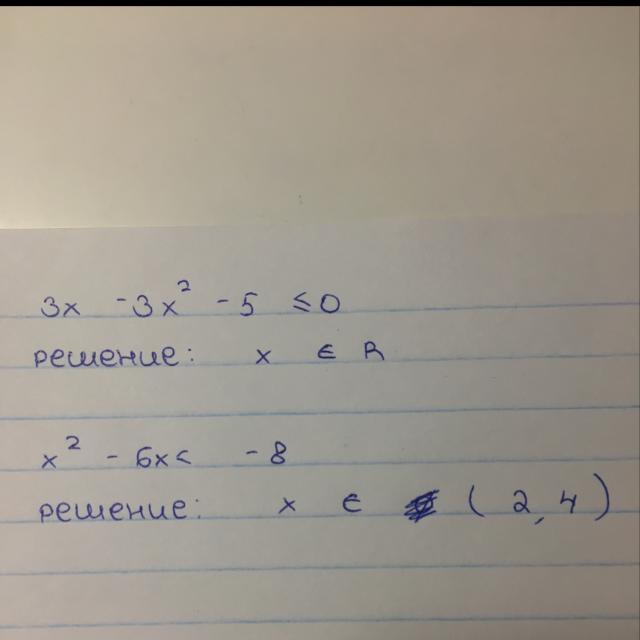 3x - 3x² - 5 ≤ 0
решение: x ∈ R
x² - 6x < - 8
решение: x ∈ (2, 4)